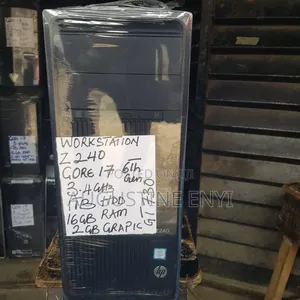 WORKSTATION
Z240
CORE I7 6th Gen
3.4GHz
1TB HDD
16GB RAM
2GB GRAPIC
Z240
hp
ENYI